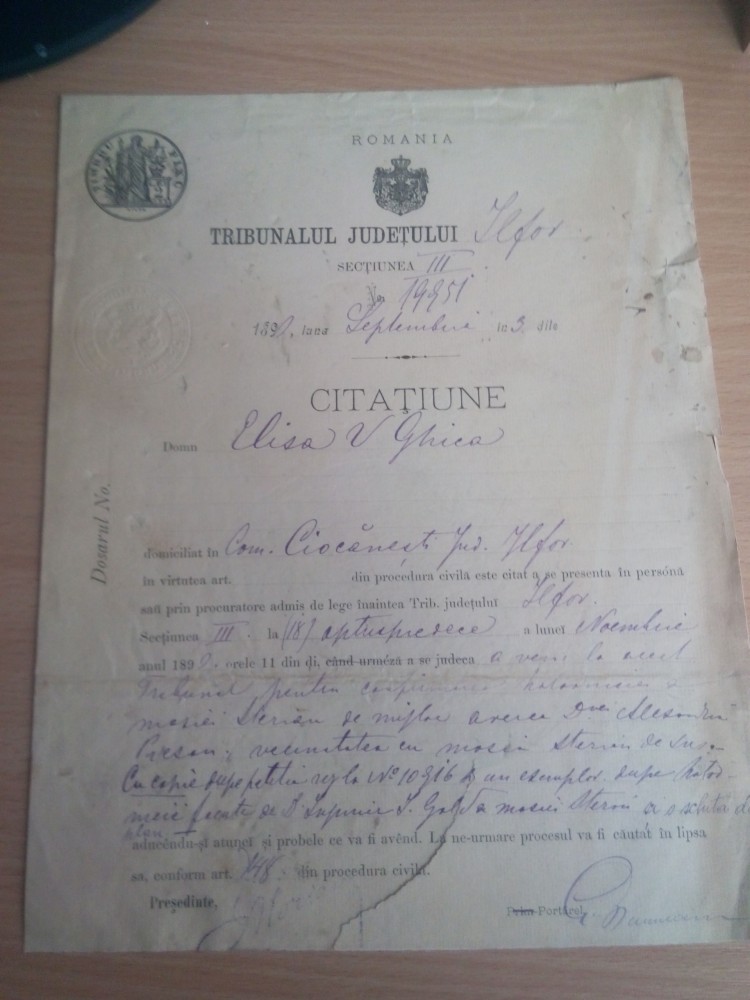 TIMBRU FIX
ROMANIA
TRIBUNALUL JUDEȚULUI Ilfov
SECȚIUNEA III
No. 19951
189 luna Septembrie in 3 dile
CITAȚIUNE
Domn Elisa V Ghica
Dosarul No.
domiciliat în Com. Ciocănești Jud. Ilfov
în virtutea art. din procedura civilă este citat a se presenta în persónă
saŭ prin procuratore admis de lege înaintea Trib. județului Ilfov.
Secțiunea III la (18) optuspredece a lunei Noembrie
anul 189 orele 11 din ḑi, când urméză a se judeca a veni la acest
Tribunal pentru
mosiei Sterian de mijloc averea Dnei Alesandru
vecinitatea cu mosia Sterian de
Cu copie dupe petitia reg la No 10916 un esemplar dupe hotar-
nicie facute de D. Inginer mosiei
plan
aducêndu-șĭ atuncĭ și probele ce va fi avênd. La ne-urmare procesul va fi căutat în lipsa
sa, conform art. 148 din procedura civilă.
Președinte,
Prin Portărel